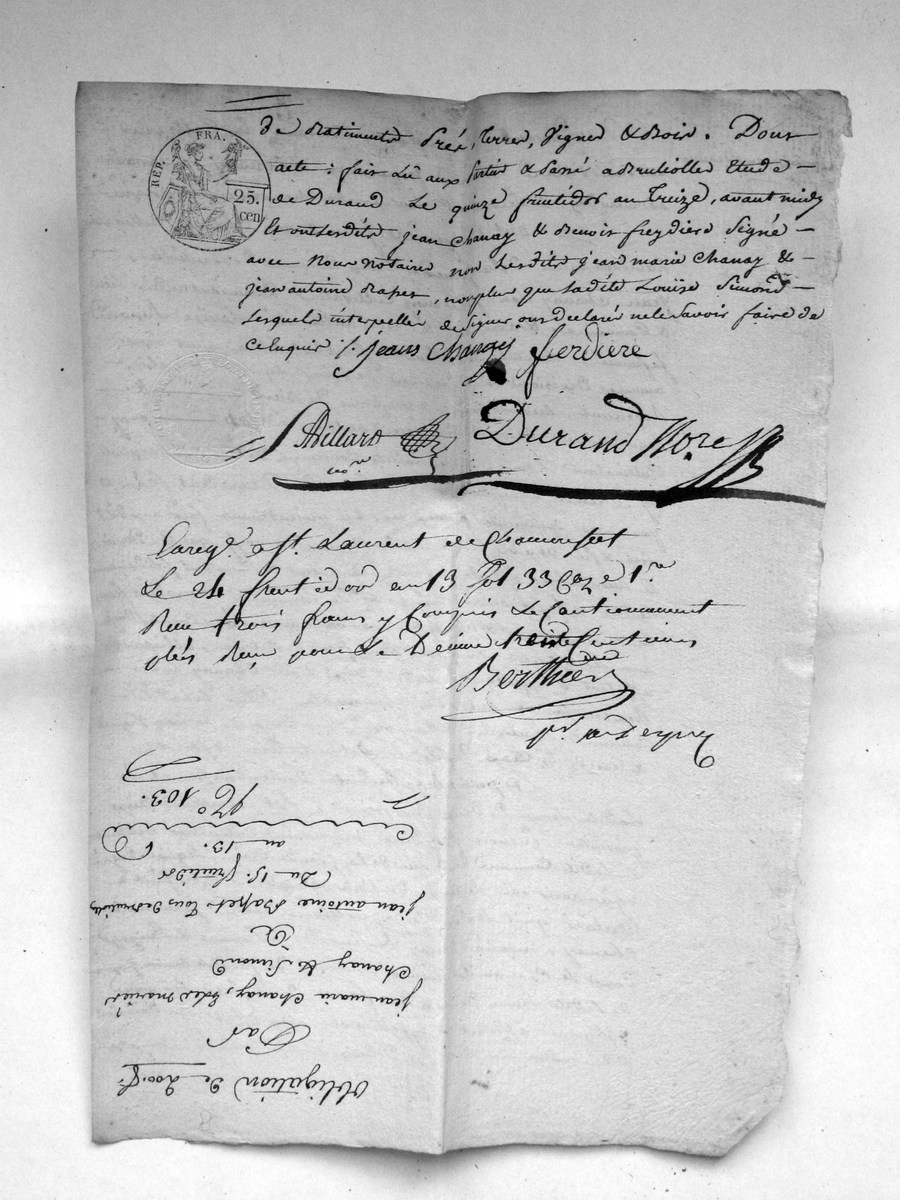 REP. FRA.
25.
cen
de Batiments Prés, terres, Vignes & Bois. Dont
acte: fait Lû aux parties & Passé a Brulliolle Etude
de Durand Le quinze fructidor an treize, avant midy
Et ont Lesdits jean Chanay & Benoit freydiere Signé
avec Nous Notaires non Lesdits jean marie Chanay &
jean antoine Rapet, nonplus que Ladite Louise Simond
Lesquels interpellés de Signer ont declaré nele Savoir faire de
ce Enquis /. jean Chanay ferdiere
Billard Durand Nore
nore
Enregé. a St. Laurent de Chamousset
Le 24 fructidor an 13 fol 33 Case 1re
Reçu trois francs y Compris Le Cautionnement
plus Reçu pour Le Decime trente Centimes
Berthier
Obligation de 200. f.
Par
jean marie Chanay, & les mariés
Chanay & Simond
A
jean antoine Rapet tous de
Du 15. fructidor
an 13.
No 103.